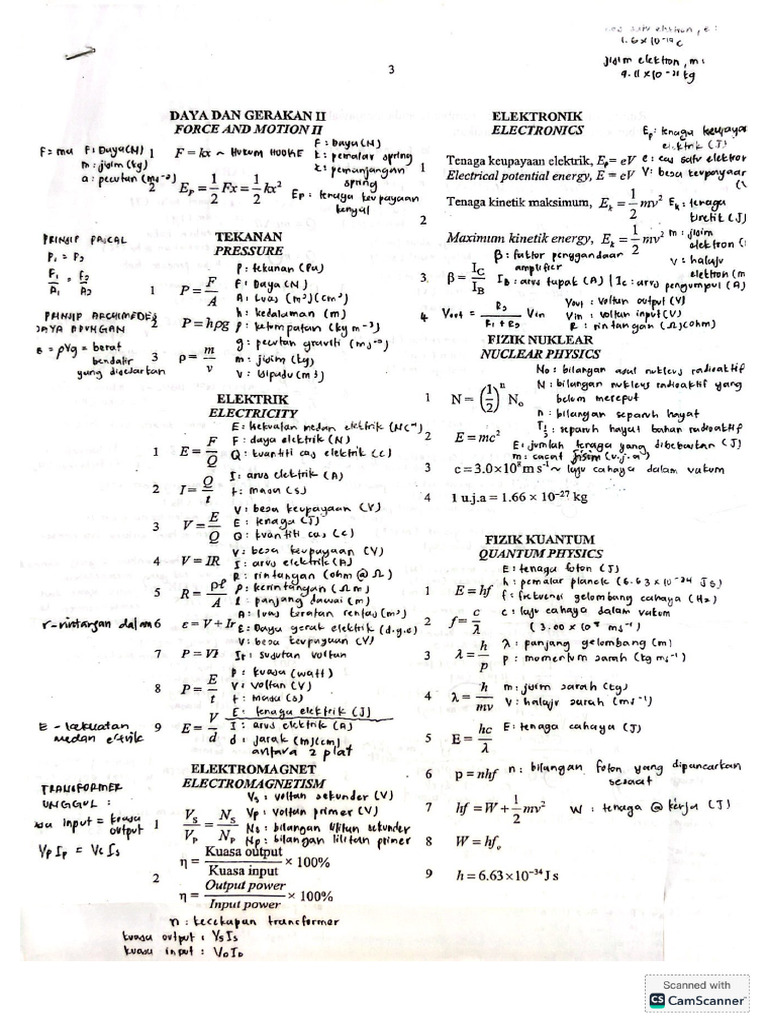 1.6 × 10⁻¹⁹ C
jisim elektron, m :
9.11 × 10⁻³¹ kg
3
DAYA DAN GERAKAN II
FORCE AND MOTION II
F = ma F : Daya (N)
m : jisim (kg)
a : pecutan (ms⁻²)
1 F = kx ~ HUKUM HOOKE
F : Daya (N)
k : pemalar spring
x : pemanjangan
spring
2 Eₚ = 1/2 Fx = 1/2 kx²
Ep : tenaga keupayaan
kenyal
TEKANAN
PRESSURE
PRINSIP PASCAL
P₁ = P₂
F₁/A₁ = F₂/A₂
P : tekanan (Pa)
1 P = F/A
F : Daya (N)
A : Luas (m²)(cm²)
PRINSIP ARCHIMEDES
DAYA APUNGAN
= ρVg = berat
bendalir
yang disesarkan
2 P = hρg
h : kedalaman (m)
ρ : ketumpatan (kg m⁻³)
g : pecutan graviti (ms⁻²)
3 ρ = m/v
m : jisim (kg)
V : isipadu (m³)
ELEKTRIK
ELECTRICITY
E : kekuatan medan elektrik (NC⁻¹)
1 E = F/Q
F : daya elektrik (N)
Q : kuantiti cas elektrik (C)
2 I = Q/t
I : arus elektrik (A)
t : masa (s)
3 V = E/Q
V : beza keupayaan (V)
E : tenaga (J)
Q : kuantiti cas (C)
4 V = IR
V : beza keupayaan (V)
I : arus elektrik (A)
R : rintangan (ohm @ Ω)
5 R = ρℓ/A
ρ : kerintangan (Ω m)
l : panjang dawai (m)
A : luas keratan rentas (m²)
r - rintangan dalam 6 ε = V + Ir
ε : Daya gerak elektrik (d.g.e)
V : beza keupayaan (V)
Ir : susutan voltan
7 P = VI
P : kuasa (watt)
8 P = E/t
V : voltan (V)
t : masa (s)
E : tenaga elektrik (J)
E - kekuatan
medan
9 E = V/d
I : arus elektrik (A)
d : jarak (m)(cm)
antara 2 plat
ELEKTROMAGNET
ELECTROMAGNETISM
TRANSFORMER
UNGGUL :
input = kuasa
output
VpIp = VsIs
1 Vₛ/Vₚ = Nₛ/Nₚ
Vs : voltan sekunder (V)
Vp : voltan primer (V)
Ns : bilangan lilitan sekunder
Np : bilangan lilitan primer
2 η = Kuasa output/Kuasa input × 100%
η = Output power/Input power × 100%
η : kecekapan transformer
kuasa output : VsIs
kuasa input :
ELEKTRONIK
ELECTRONICS
Ep : tenaga keupayaan
elektrik (J)
1 Tenaga keupayaan elektrik, Eₚ = eV
e : cas satu elektron
Electrical potential energy, E = eV
V : beza keupayaan
2 Tenaga kinetik maksimum, Eₖ = 1/2 mv²
Ek : tenaga
kinetik (J)
Maximum kinetic energy, Eₖ = 1/2 mv²
m : jisim
elektron
v : halaju
elektron (m
3 β = I_C/I_B
β : faktor penggandaan
amplifier
IB : arus tapak (A) | Ic : arus pengumpul (A)
4 Vout = R₂/(R₁ + R₂) Vin
Vout : voltan output (V)
Vin : voltan input (V)
R : rintangan (Ω)(ohm)
FIZIK NUKLEAR
NUCLEAR PHYSICS
1 N = (1/2)ⁿ N₀
No : bilangan asal nukleus radioaktif
N : bilangan nukleus radioaktif yang
belum mereput
n : bilangan separuh hayat
T½ : separuh hayat bahan radioaktif
2 E = mc²
E : jumlah tenaga yang dibebaskan (J)
m : cacat jisim (u.j.a)
3 c = 3.0 × 10⁸ m s⁻¹ ~ laju cahaya dalam vakum
4 1 u.j.a = 1.66 × 10⁻²⁷ kg
FIZIK KUANTUM
QUANTUM PHYSICS
1 E = hf
E : tenaga foton (J)
h : pemalar planck (6.63 × 10⁻³⁴ Js)
f : frekuensi gelombang cahaya (Hz)
2 f = c/λ
c : laju cahaya dalam vakum
(3.00 × 10⁸ ms⁻¹)
3 λ = h/p
λ : panjang gelombang (m)
p : momentum zarah (kg ms⁻¹)
4 λ = h/mv
m : jisim zarah (kg)
V : halaju zarah (ms⁻¹)
5 E = hc/λ
E : tenaga cahaya (J)
6 p = nhf
n : bilangan foton yang dipancarkan
sesaat
7 hf = W + 1/2 mv²
W : tenaga @ kerja (J)
8 W = hf₀
9 h = 6.63 × 10⁻³⁴ J s
Scanned with
CS CamScanner